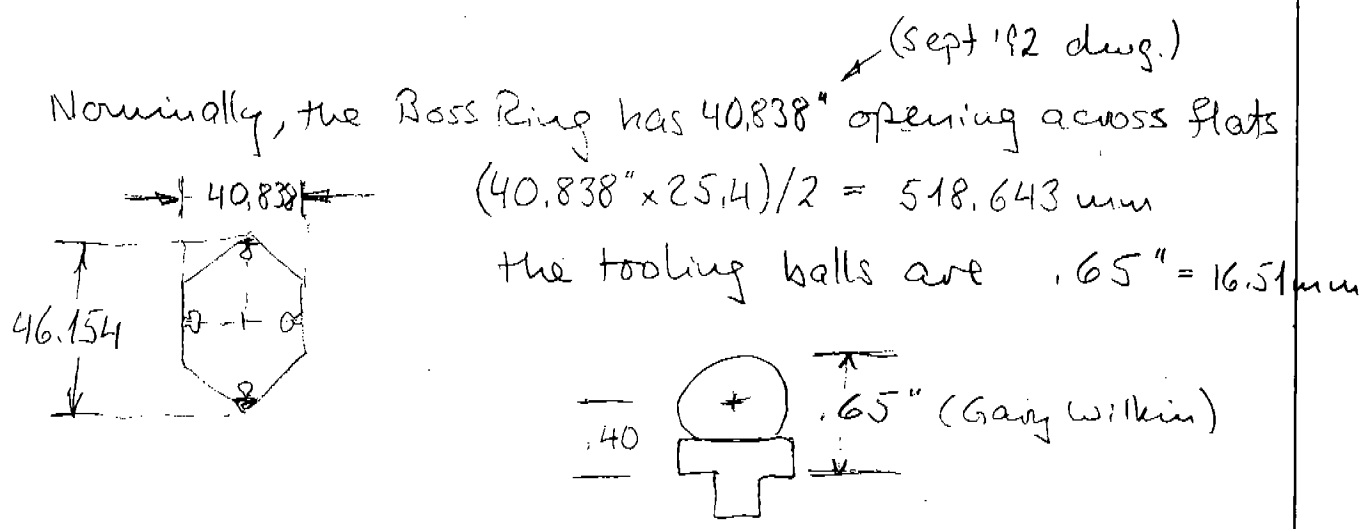 (Sept '92 dwg.)
Nominally, the Boss Ring has 40,838" opening across flats
40,838
(40,838" x 25,4)/2 = 518.643 mm
the tooling balls are .65" = 16.51mm
46.154
.65" (Gary Wilkin)
.40